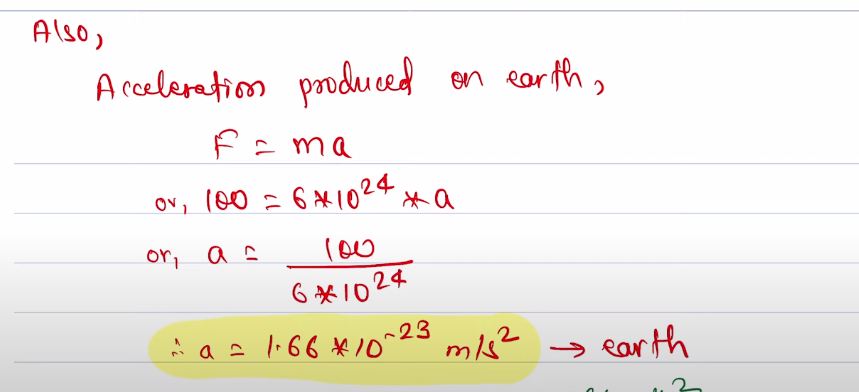 Also,
Acceleration produced on earth,
F = ma
or, 100 = 6*10^24 * a
or, a = 100 / 6*10^24
∴ a = 1.66 *10^-23 m/s^2 → earth